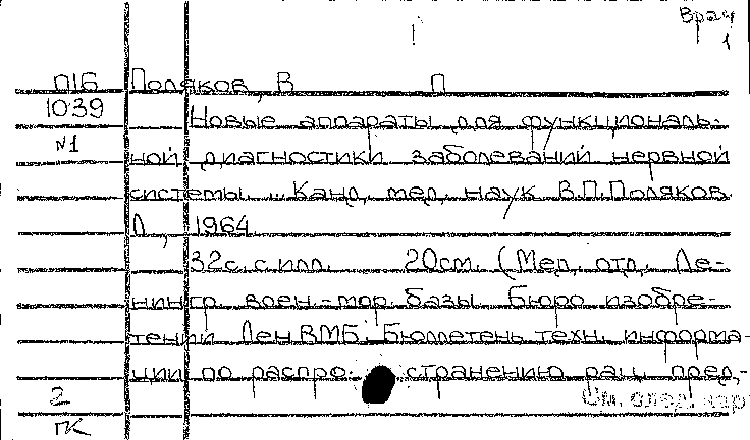 Врач
1
П1Б Поляков, В П
1039 Новые аппараты для функциональ-
№1 ной диагностики заболеваний нервной
системы. .. Канд. мед. наук В.П.Поляков.
Л., 1964
32с. с илл. 20см. (Мед. отд. Ле-
нингр. воен.-мор. базы. Бюро изобре-
тений Лен ВМБ. Бюллетень техн. информа-
ции по распро- странению рац. пред.-
2 См. след. кар
ГК